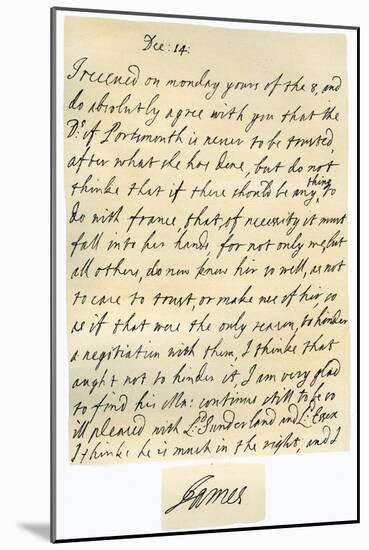 Dec: 14:
I receued on monday yours of the 8, and
do absolutly agree with you that the
Ds. of Portsmouth is never to be trusted,
after what she has done, but do not
thinke that if there should be any thing to
do with france, that, of necessity it must
fall into her hands for not only we, but
all others, do now know her so well, as not
to care to trust, or make use of her, so
as if that were the only reason, to hinder
a negotiation with them, I thinke that
aught not to hinder it, I am very glad
to find his Ma: continus still to be so
ill pleased with Ld. Sunderland and Ld. Essex
I thinke he is much in the right, and I
James